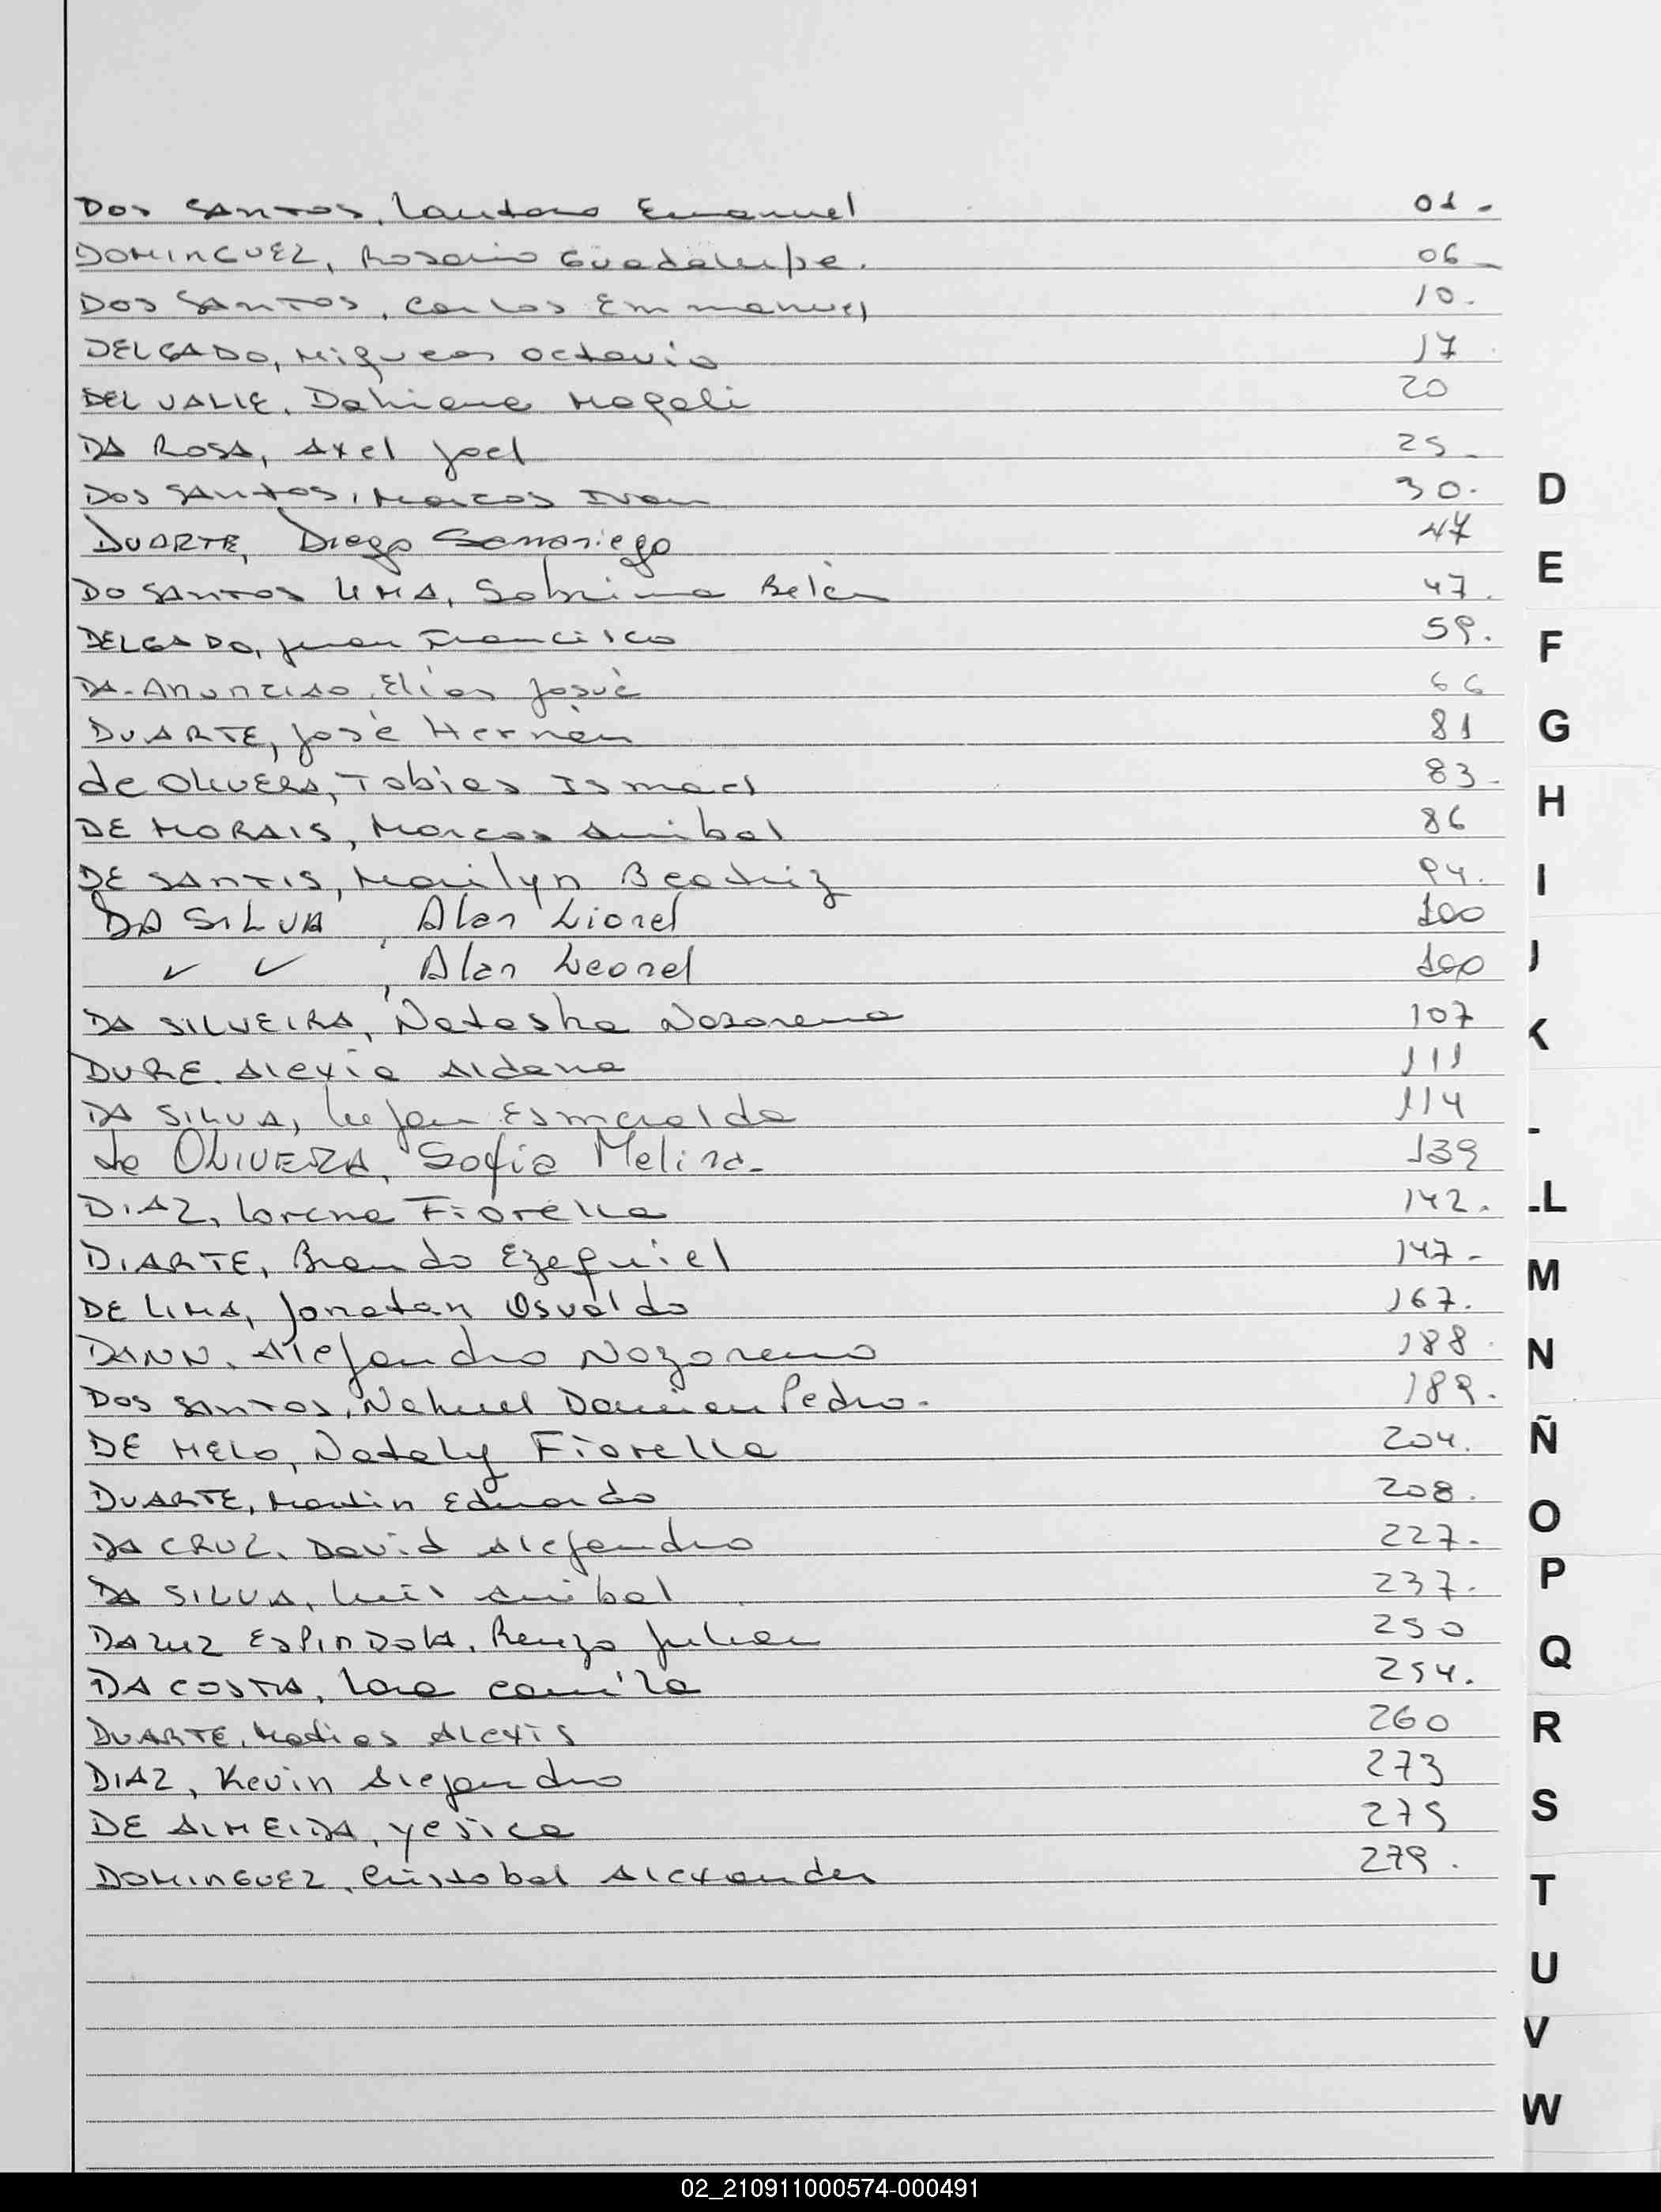 DOS SANTOS, Lautaro Emanuel 01.
DOMINGUEZ, Rosario Guadalupe. 06
DOS SANTOS, Carlos Emmanuel 10.
DELGADO, Miqueas Octavio 17
DEL VALLE, Dahiana Magali 20
DA ROSA, Axel Joel 25
DOS SANTOS, Marcos Ivan 30.
DUARTE, Diego Samaniego 47
DO SANTOS LIMA, Sabrina Belén 47.
DELGADO, Juan Francisco 59.
DA-Anunciao, Elías Josué 66
DUARTE, José Hernán 81
de OLIVERA, Tobias Ismael 83.
DE MORAIS, Marcos Anibal 86
DE SANTIS, Marilyn Beatriz 94.
DA SILVA, Alan Lionel 100
✓ ✓, Alan Leonel 100
DA SILVEIRA, Natasha Nazarena 107
DURE. Alexia Aldana 111
DA SILVA, Lujan Esmeralda 114
de OLIVEIRA, Sofia Melina. 139
DIAZ, Lorena Fiorella 142.
DIARTE, Brando Ezequiel 147-
DE LIMA, Jonatan Osvaldo 167.
DANN. Alejandro Nazareno 188.
DOS SANTOS, Nahuel Damian Pedro. 189.
DE MELO, Nataly Fiorella 204.
DUARTE, Martin Eduardo 208.
DA CRUZ, David Alejandro 227.
DA SILVA, Luis Anibal 237.
DA LUZ ESPINDOLA, Renzo Julian 250
DA COSTA, Lara Camila 254.
DUARTE, Matias Alexis 260
DIAZ, Kevin Alejandro 273
DE ALMEIDA, Yesica 275
DOMINGUEZ, Cristobal Alexander 279.
D
E
F
G
H
I
J
K
LL
M
N
Ñ
O
P
Q
R
S
T
U
V
W
02_210911000574-000491